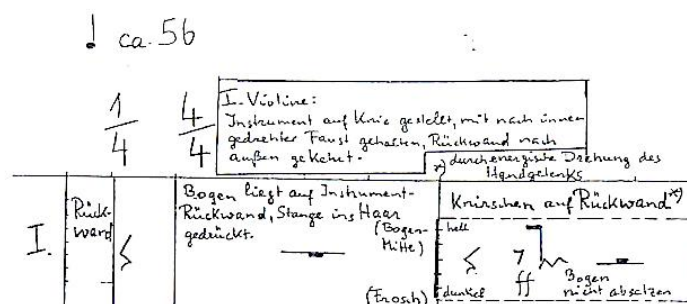 ca. 56
1
4
4
4
I. Violine:
Instrument auf Knie gestellt, mit nach innen
gedrehter Faust gehalten, Rückwand nach
außen gekehrt.
*) durch energische Drehung des
Handgelenks
I.
Rück-
wand
Bogen liegt auf Instrument-
Rückwand, Stange ins Haar
gedrückt.
(Bogen-
Mitte)
(Frosch)
Knirschen auf Rückwand *)
hell
dunkel
ff
Bogen
nicht absetzen